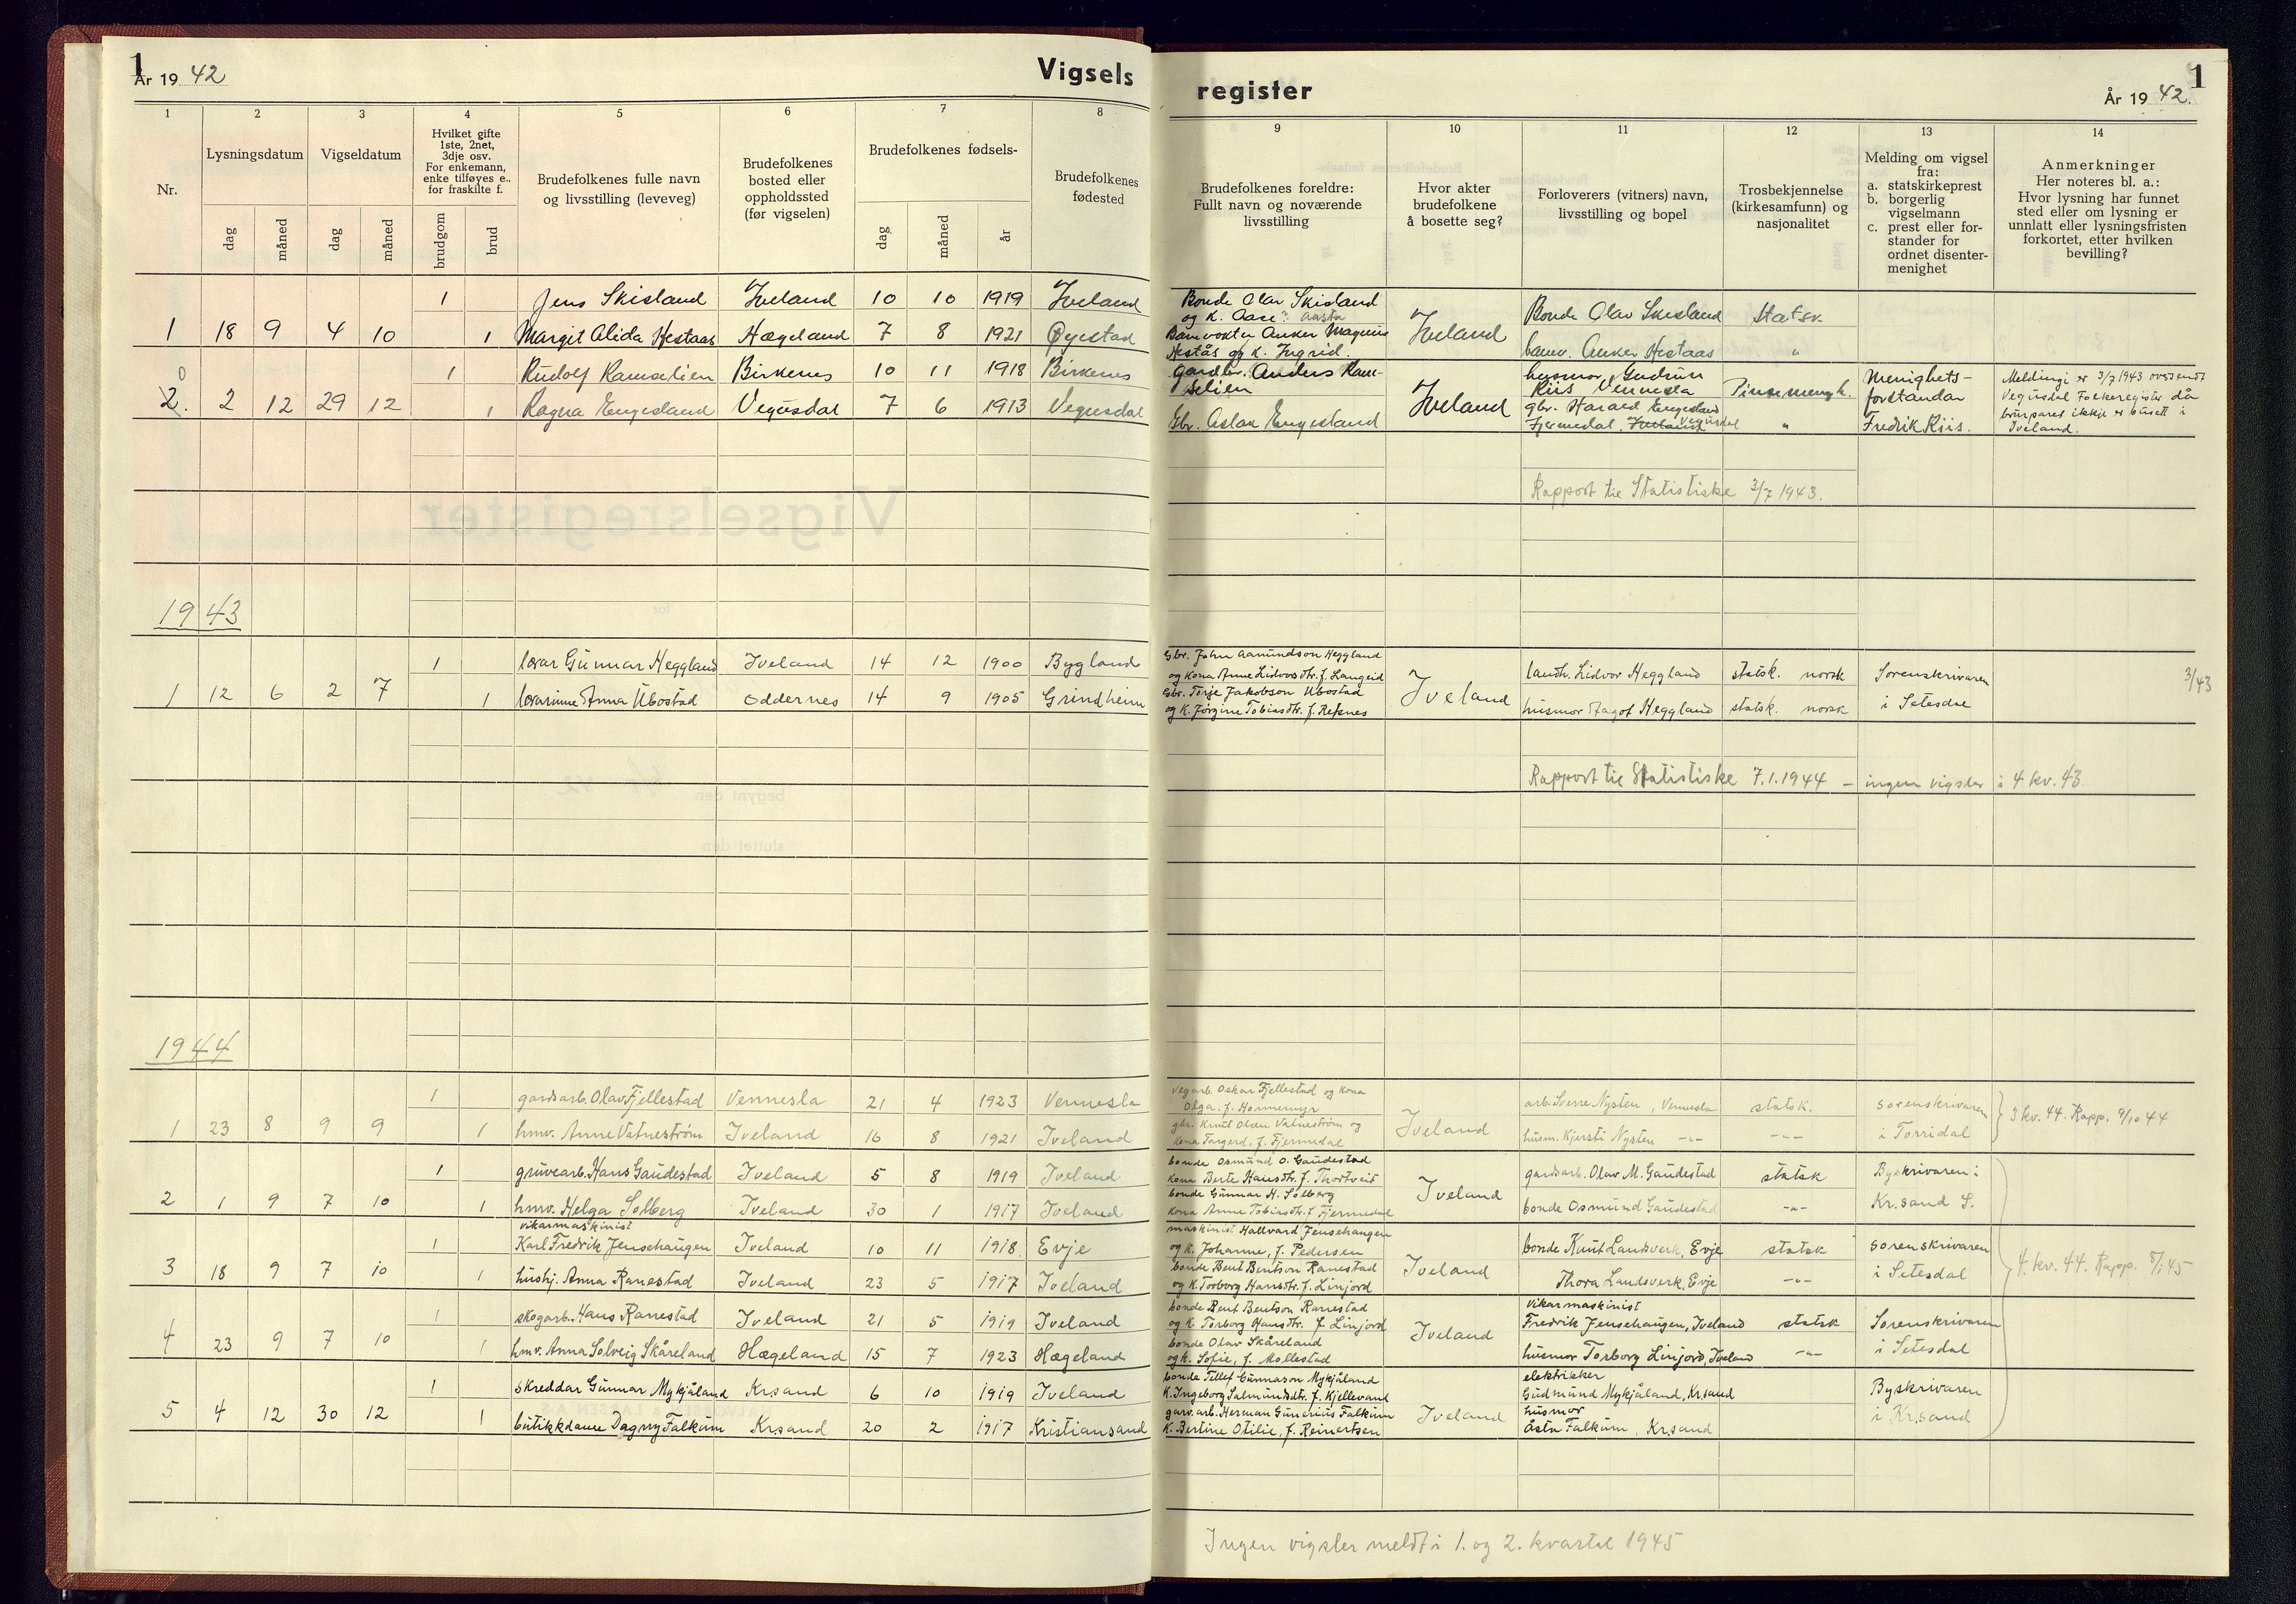 1
År 19 42
Vigsels
register
1
År 19 42.
1 2 3 4 5 6 7 8
Nr.
Lysningsdatum
dag måned
Vigseldatum
dag måned
Hvilket gifte
1ste, 2net,
3dje osv.
For enkemann,
enke tilføyes e..
for fraskilte f.
brudgom brud
Brudefolkenes fulle navn
og livsstilling (leveveg)
Brudefolkenes
bosted eller
oppholdssted
(før vigselen)
Brudefolkenes fødsels-
dag måned år
Brudefolkenes
fødested
9 10 11 12 13 14
Brudefolkenes foreldre:
Fullt navn og noværende
livsstilling
Hvor akter
brudefolkene
å bosette seg?
Forloverers (vitners) navn,
livsstilling og bopel
Trosbekjennelse
(kirkesamfunn) og
nasjonalitet
Melding om vigsel
fra:
a. statskirkeprest
b. borgerlig
vigselmann
c. prest eller for-
stander for
ordnet disenter-
menighet
Anmerkninger
Her noteres bl. a.:
Hvor lysning har funnet
sted eller om lysning er
unnlatt eller lysningsfristen
forkortet, etter hvilken
bevilling?
1 Jens Skisland Iveland 10 10 1919 Iveland
1 18 9 4 10 1 Margit Alida Hestaas Hægeland 7 8 1921 Øyestad
Bonde Olav Skisland
og k. Aase? Aasta
Banevokter Anker Magnus
Hestås og k. Ingrid.
Iveland
Bonde Olav Skisland Statsk.
banev. Anker Hestaas "
1 Rudolf Ramselien Birkenes 10 11 1918 Birkenes
2. 2 12 29 12 1 Ragna Engesland Vegusdal 7 6 1913 Vegusdal
gardbr. Anders Ram-
selien
Gbr. Aslak Engesland
Iveland
husmor Gudrun
Riis Vennesla
gbr. Harald Engesland
Fjermedal, Iveland Vegusdal
Pinsemengh.
"
Menighets-
forstandar
Fredrik Riis.
Meldingi er 3/7 1943 oversendt
Vegusdal Folkeregister då
brurparet ikkje er busett i
Iveland.
Rapport til Statistiske 3/7 1943.
1943
1 lærar Gunnar Heggland Iveland 14 12 1900 Bygland
1 12 6 2 7 1 lærarinne Anna Ubostad Oddernes 14 9 1905 Grindheim
Gbr. John Aamundson Heggland
og kona Anne Lidvorsdtr. f. Langeid
Gbr. Terje Jakobson Ubostad
og k. Jørgine Tobiasdtr. f. Refsnes
Iveland
landh. Lidvor Heggland statsk. norsk
husmor Aagot Heggland statsk. norsk
Sorenskrivaren
i Setesdal
3/43
Rapport til Statistiske 7.1.1944 – ingen vigslar i 4 kv. 43
1944
1 gardsarb. Olav Fjellestad Vennesla 21 4 1923 Vennesla
1 23 8 9 9 1 hmv. Anne Vatnestrøm Iveland 16 8 1921 Iveland
Vegarb. Oskar Fjellestad og kona
Olga, f. Hommemyr
gbr. Knut Olsen Vatnestrøm og
kona Torgerd, f. Fjermedal
Iveland
arb. Sverre Nysten, Vennesla statsk.
husm. Kjersti Nysten -"- -"-
sorenskrivaren
i Torridal
3 kv. 44. Rapp. 9/10 44
1 gruvearb. Hans Gaudestad Iveland 5 8 1919 Iveland
2 1 9 7 10 1 hmv. Helga Solberg Iveland 30 1 1917 Iveland
bonde Osmund O. Gaudestad
kona Berte Hansdtr. f. Thortveit
bonde Gunnar H. Solberg
kona Anne Tobiasdtr. f. Fjermedal
Iveland
gardsarb. Olav M. Gaudestad statsk
bonde Osmund Gaudestad -"-
Byskrivaren i
Kr.sand S.
vikarmaskinist
1 Karl Fredrik Jensehaugen Iveland 10 11 1918 Evje
3 18 9 7 10 1 hushj. Anna Ranestad Iveland 23 5 1917 Iveland
maskinist Hallvard Jensehaugen
og k. Johanne, f. Pedersen
bonde Bent Bentson Ranestad
og k. Torborg Hansdtr. f. Linjord
Iveland
bonde Knut Landsverk, Evje statsk
Thora Landsverk, Evje -"-
sorenskrivaren
i Setesdal
4. kv. 44. Rapp. 8/1 45
1 skogarb. Hans Ranestad Iveland 21 5 1919 Iveland
4 23 9 7 10 1 hmv. Anna Solveig Skåreland Hægeland 15 7 1923 Hægeland
bonde Bent Bentson Ranestad
og k. Torborg Hansdtr. f. Linjord
bonde Olav Skåreland
og k. Sofie, f. Mollestad
Iveland
vikarmaskinist
Fredrik Jensehaugen, Iveland statsk
husmor Torborg Linjord, Iveland -"-
Sorenskrivaren
i Setesdal
1 skreddar Gunnar Mykjåland Krsand 6 10 1919 Iveland
5 4 12 30 12 1 butikkdame Dagny Falkum Krsand 20 2 1917 Kristiansand
bonde Tellef Gunnason Mykjåland
k. Ingeborg Salmundsdtr. f. Kjellevand
garv.arb. Herman Gunerius Falkum
k. Bertine Otilie, f. Reinertsen
Iveland
elektrikker
Gudmund Mykjåland, Kr.sand
husmor
Åsta Falkum, Kr.sand
Byskrivaren
i Kr.sand
Ingen vigsler meldt i 1. og 2. kvartal 1945